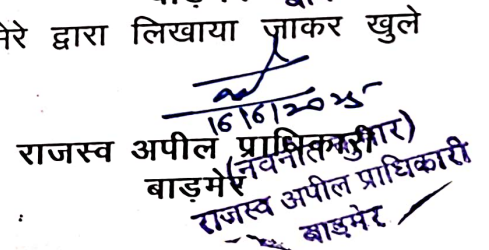 मेरे द्वारा लिखाया जाकर खुले
16/6/2025
राजस्व अपील प्राधिकारी
बाड़मेर
(नवनीत कुमार)
राजस्व अपील प्राधिकारी
बाड़मेर